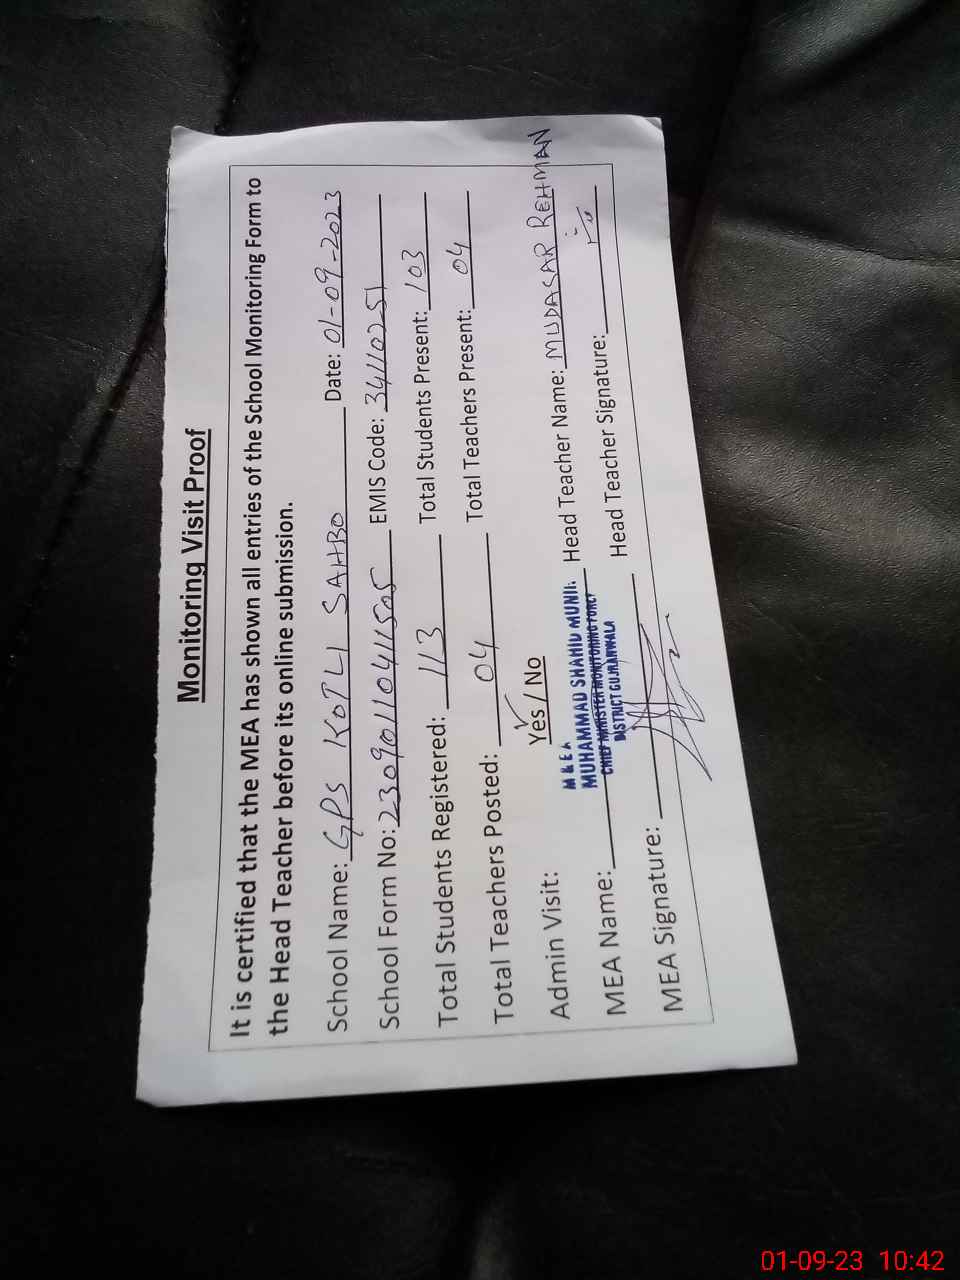 Monitoring Visit Proof
It is certified that the MEA has shown all entries of the School Monitoring Form to
the Head Teacher before its online submission.
School Name: GPS KOTLI SAHBO Date: 01-09-2023
School Form No: 23090110411505 EMIS Code: 34110251
Total Students Registered: 113 Total Students Present: 103
Total Teachers Posted: 04 Total Teachers Present: 04
Admin Visit: Yes / No
M & E A
MUHAMMAD SHAHID MUNIR
CHIEF MINISTER MONITORING FORCE
DISTRICT GUJRANWALA
MEA Name: Head Teacher Name: MUDASAR REHMAN
MEA Signature: Head Teacher Signature:
01-09-23 10:42